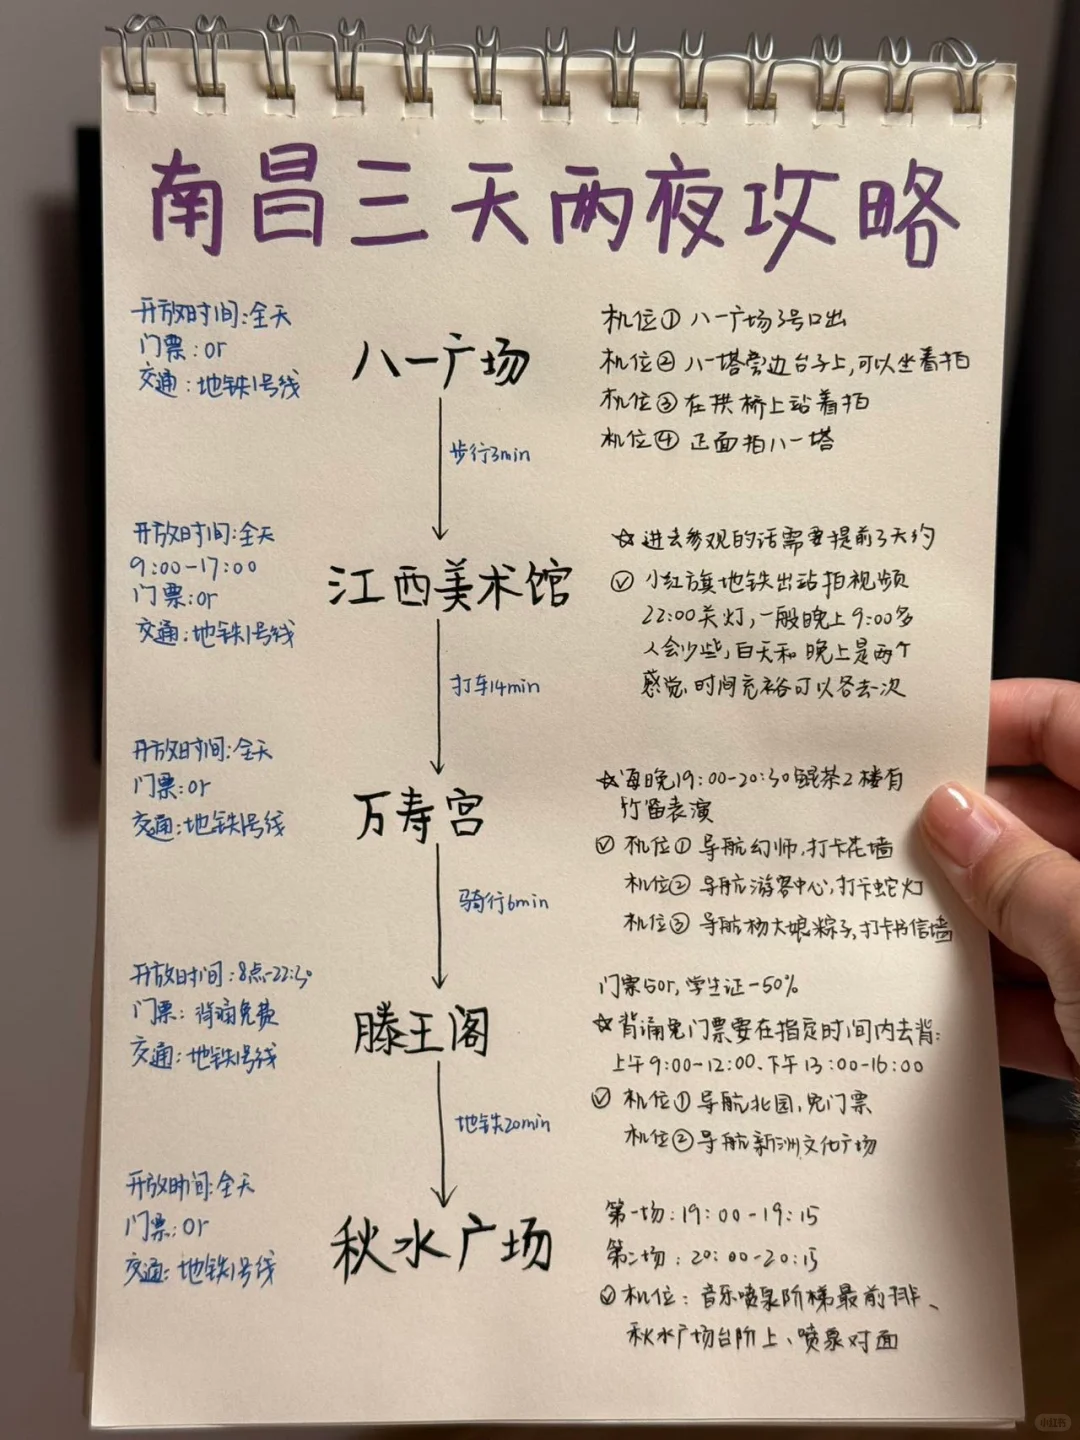 南昌三天两夜攻略
开放时间:全天
门票:0r
交通:地铁1号线
八一广场
机位① 八一广场3号口出
机位② 八一塔旁边台子上,可以坐着拍
机位③ 在拱桥上站着拍
机位④ 正面拍八一塔
步行3min
开放时间:全天
9:00-17:00
门票:0r
交通:地铁1号线
江西美术馆
☆进去参观的话需要提前3天约
小红旗地铁出站拍视频
22:00关灯,一般晚上9:00多
人会少些,白天和晚上是两个
感觉,时间充裕可以各去一次
打车14min
开放时间:全天
门票:0r
交通:地铁1号线
万寿宫
☆每晚19:00-20:30鲲茶2楼有
竹笛表演
机位① 导航幻师,打卡花墙
机位② 导航游客中心,打卡蛇灯
机位③ 导航杨大娘粽子,打卡书信墙
骑行6min
开放时间:8点-22:30
门票:背诵免费
交通:地铁1号线
滕王阁
门票50r,学生证-50%
☆背诵免门票要在指定时间内去背:
上午9:00-12:00、下午13:00-16:00
机位① 导航北园,免门票
机位② 导航新洲文化广场
地铁20min
开放时间:全天
门票:0r
交通:地铁1号线
秋水广场
第一场:19:00-19:15
第二场:20:00-20:15
机位:音乐喷泉阶梯最前排、
秋水广场台阶上、喷泉对面
小红书